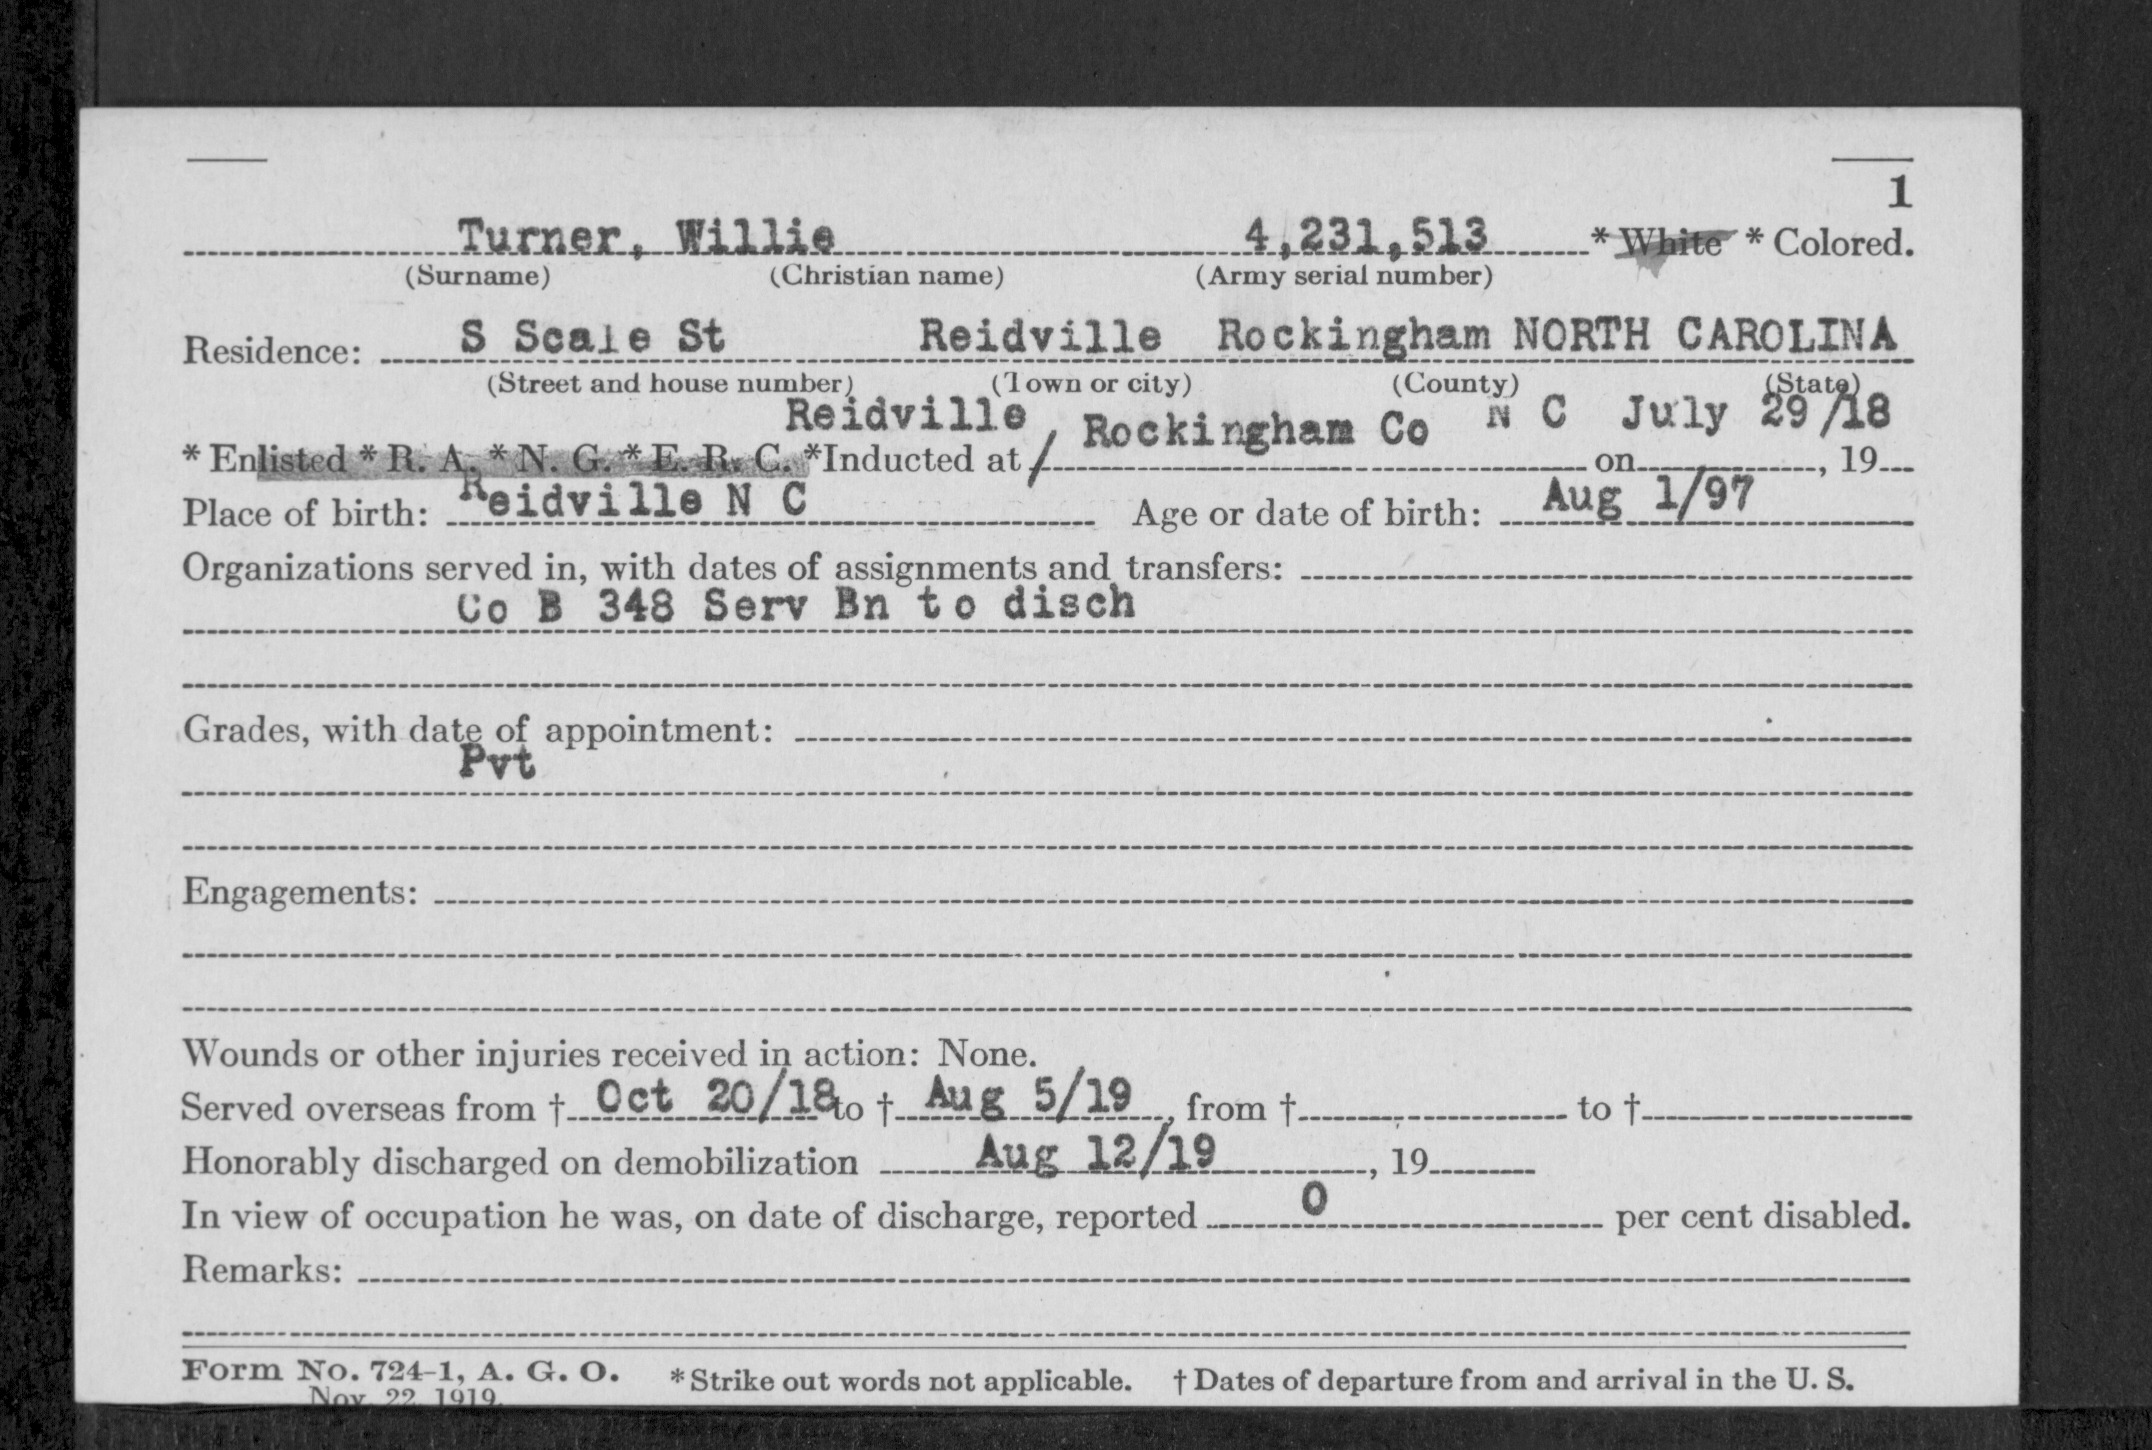 1
Turner, Willie 4,231,513 * White * Colored.
(Surname) (Christian name) (Army serial number)
Residence: S Scale St Reidville Rockingham NORTH CAROLINA
(Street and house number) (Town or city) (County) (State)
Reidville, Rockingham Co N C July 29/18
* Enlisted * R. A. * N. G. * E. R. C. *Inducted at / on , 19
Place of birth: Reidville N C Age or date of birth: Aug 1/97
Organizations served in, with dates of assignments and transfers:
Co B 348 Serv Bn to disch
Grades, with date of appointment:
Pvt
Engagements:
Wounds or other injuries received in action: None.
Served overseas from † Oct 20/18 to † Aug 5/19, from † to †
Honorably discharged on demobilization Aug 12/19, 19
In view of occupation he was, on date of discharge, reported 0 per cent disabled.
Remarks:
Form No. 724-1, A. G. O. * Strike out words not applicable. † Dates of departure from and arrival in the U. S.
Nov. 22, 1919.